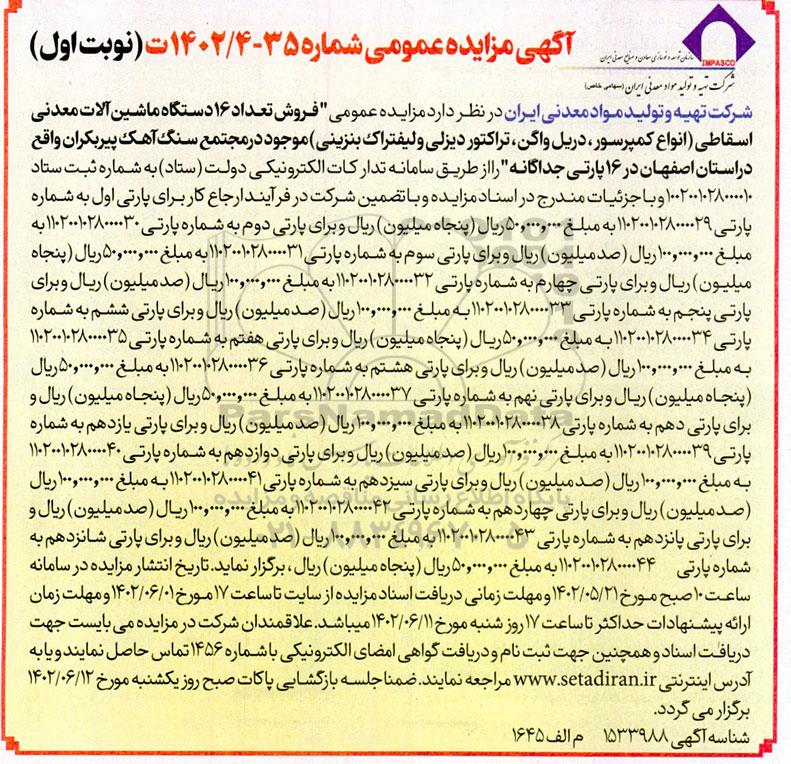 آگهی مزایده عمومی شماره ۳۵-۱۴۰۲/۴ت (نوبت اول)
IMPASCO
سازمان توسعه و نوسازی معادن و صنایع معدنی ایران
شرکت تهیه و تولید مواد معدنی ایران (سهامی خاص)
شرکت تهیه و تولید مواد معدنی ایران در نظر دارد مزایده عمومی "فروش تعداد ۱۶ دستگاه ماشین آلات معدنی
اسقاطی (انواع کمپرسور، دریل واگن، تراکتور دیزلی و لیفتراک بنزینی) موجود در مجتمع سنگ آهک پیربکران واقع
در استان اصفهان در ۱۶ پارتی جداگانه" را از طریق سامانه تدارکات الکترونیکی دولت (ستاد) به شماره ثبت ستاد
۱۰۰۲۰۰۱۰۲۸۰۰۰۰۱۰ و با جزئیات مندرج در اسناد مزایده و با تضمین شرکت در فرآیند ارجاع کار برای پارتی اول به شماره
پارتی ۱۱۰۲۰۰۱۰۲۸۰۰۰۰۲۹ به مبلغ ۵۰,۰۰۰,۰۰۰ ریال (پنجاه میلیون) ریال و برای پارتی دوم به شماره پارتی ۱۱۰۲۰۰۱۰۲۸۰۰۰۰۳۰ به
مبلغ ۱۰۰,۰۰۰,۰۰۰ ریال (صد میلیون) ریال و برای پارتی سوم به شماره پارتی ۱۱۰۲۰۰۱۰۲۸۰۰۰۰۳۱ به مبلغ ۵۰,۰۰۰,۰۰۰ ریال (پنجاه
میلیون) ریال و برای پارتی چهارم به شماره پارتی ۱۱۰۲۰۰۱۰۲۸۰۰۰۰۳۲ به مبلغ ۱۰۰,۰۰۰,۰۰۰ ریال (صد میلیون) ریال و برای
پارتی پنجم به شماره پارتی ۱۱۰۲۰۰۱۰۲۸۰۰۰۰۳۳ به مبلغ ۱۰۰,۰۰۰,۰۰۰ ریال (صد میلیون) ریال و برای پارتی ششم به شماره
پارتی ۱۱۰۲۰۰۱۰۲۸۰۰۰۰۳۴ به مبلغ ۵۰,۰۰۰,۰۰۰ ریال (پنجاه میلیون) ریال و برای پارتی هفتم به شماره پارتی ۱۱۰۲۰۰۱۰۲۸۰۰۰۰۳۵
به مبلغ ۱۰۰,۰۰۰,۰۰۰ ریال (صد میلیون) ریال و برای پارتی هشتم به شماره پارتی ۱۱۰۲۰۰۱۰۲۸۰۰۰۰۳۶ به مبلغ ۵۰,۰۰۰,۰۰۰ ریال
(پنجاه میلیون) ریال و برای پارتی نهم به شماره پارتی ۱۱۰۲۰۰۱۰۲۸۰۰۰۰۳۷ به مبلغ ۵۰,۰۰۰,۰۰۰ ریال (پنجاه میلیون) ریال و
برای پارتی دهم به شماره پارتی ۱۱۰۲۰۰۱۰۲۸۰۰۰۰۳۸ به مبلغ ۱۰۰,۰۰۰,۰۰۰ ریال (صد میلیون) ریال و برای پارتی یازدهم به شماره
پارتی ۱۱۰۲۰۰۱۰۲۸۰۰۰۰۳۹ به مبلغ ۱۰۰,۰۰۰,۰۰۰ ریال (صد میلیون) ریال و برای پارتی دوازدهم به شماره پارتی ۱۱۰۲۰۰۱۰۲۸۰۰۰۰۴۰
به مبلغ ۱۰۰,۰۰۰,۰۰۰ ریال (صد میلیون) ریال و برای پارتی سیزدهم به شماره پارتی ۱۱۰۲۰۰۱۰۲۸۰۰۰۰۴۱ به مبلغ ۱۰۰,۰۰۰,۰۰۰ ریال
(صد میلیون) ریال و برای پارتی چهاردهم به شماره پارتی ۱۱۰۲۰۰۱۰۲۸۰۰۰۰۴۲ به مبلغ ۱۰۰,۰۰۰,۰۰۰ ریال (صد میلیون) ریال و
برای پارتی پانزدهم به شماره پارتی ۱۱۰۲۰۰۱۰۲۸۰۰۰۰۴۳ به مبلغ ۱۰۰,۰۰۰,۰۰۰ ریال (صد میلیون) ریال و برای پارتی شانزدهم به
شماره پارتی ۱۱۰۲۰۰۱۰۲۸۰۰۰۰۴۴ به مبلغ ۵۰,۰۰۰,۰۰۰ ریال (پنجاه میلیون) ریال، برگزار نماید. تاریخ انتشار مزایده در سامانه
ساعت ۱۰ صبح مورخ ۱۴۰۲/۰۵/۲۱ و مهلت زمانی دریافت اسناد مزایده از سایت تا ساعت ۱۷ مورخ ۱۴۰۲/۰۶/۰۱ و مهلت زمان
ارائه پیشنهادات حداکثر تا ساعت ۱۷ روز شنبه مورخ ۱۴۰۲/۰۶/۱۱ میباشد. علاقمندان شرکت در مزایده می بایست جهت
دریافت اسناد و همچنین جهت ثبت نام و دریافت گواهی امضای الکترونیکی با شماره ۱۴۵۶ تماس حاصل نمایند و یا به
آدرس اینترنتی www.setadiran.ir مراجعه نمایند. ضمنا جلسه بازگشایی پاکات صبح روز یکشنبه مورخ ۱۴۰۲/۰۶/۱۲
برگزار می گردد.
شناسه آگهی ۱۵۳۳۹۸۸ م الف ۱۶۴۵
ParsNamadData
پایگاه اطلاع رسانی مناقصه و مزایده
۰۲۱-۸۸۳۴۹۶۷۰-۵